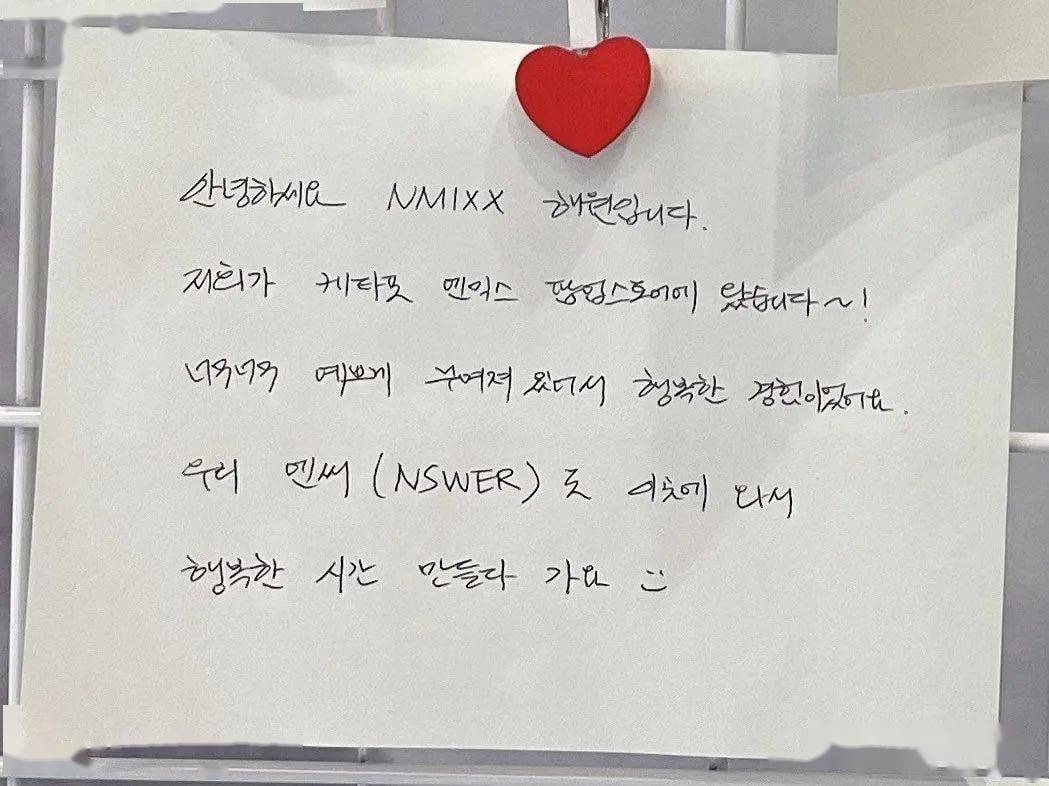 안녕하세요 NMIXX 해원입니다.
저희가 케타포 엔믹스 팝업스토어에 왔습니다~!
너무너무 예쁘게 꾸며져 있어서 행복한 경험이었어요.
우리 엔써 (NSWER)도 이곳에 와서
행복한 시간 만들다 가요 :)